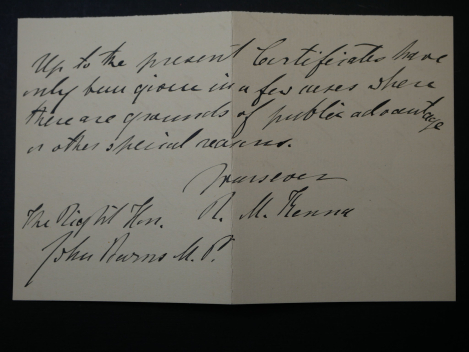 Up to the present Certificates have
only been given in a few cases where
there are grounds of public advantage
or other special reasons.
Yours ever
R. McKenna
The Right Hon.
John Burns M.P.